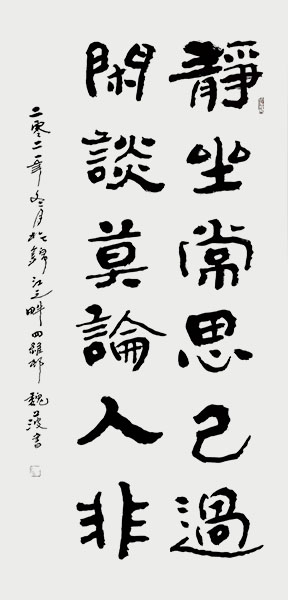 靜坐常思己過
閑談莫論人非
二零二一年冬月於錦江之畔四雅邨魏波書